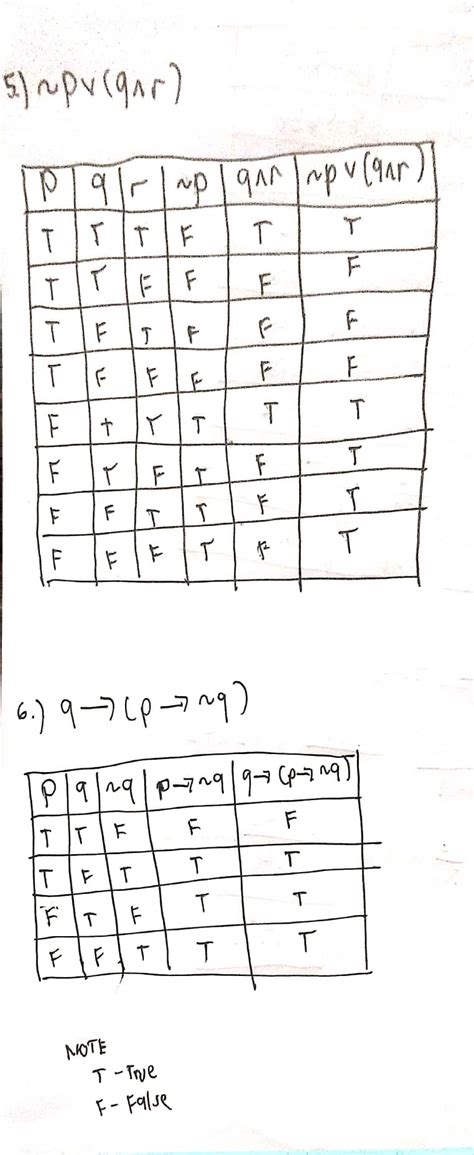 5.) ~p∨(q∧r)
p q r ~p q∧r ~p∨(q∧r)
T T T F T T
T T F F F F
T F T F F F
T F F F F F
F T T T T T
F T F T F T
F F T T F T
F F F T F T
6.) q→(p→~q)
p q ~q p→~q q→(p→~q)
T T F F F
T F T T T
F T F T T
F F T T T
NOTE
T - True
F - False